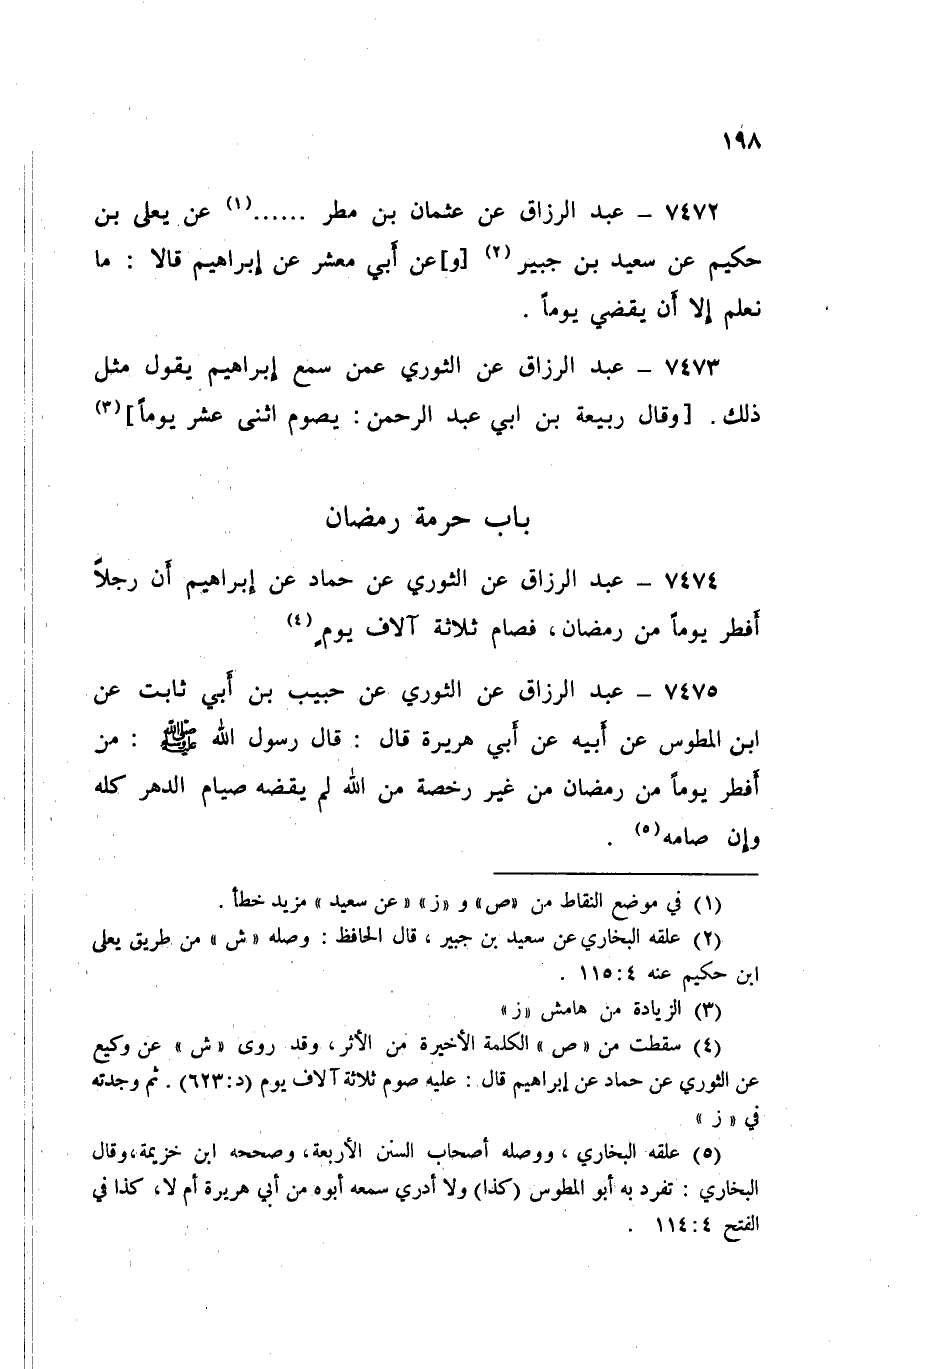 ١٩٨
٧٤٧٢ – عبد الرزاق عن عثمان بن مطر ......(١) عن يعلى بن
حكيم عن سعيد بن جبير (٢) [و]عن أَبي معشر عن إبراهيم قالا : ما
نعلم إلا أَن يقضي يوماً .
٧٤٧٣ – عبد الرزاق عن الثوري عمن سمع إبراهيم يقول مثل
ذلك . [وقال ربيعة بن ابي عبد الرحمن : يصوم اثنى عشر يوماً](٣)
باب حرمة رمضان
٧٤٧٤ – عبد الرزاق عن الثوري عن حماد عن إبراهيم أَن رجلاً
أَفطر يوماً من رمضان، فصام ثلاثة آلاف يومٍ(٤)
٧٤٧٥ – عبد الرزاق عن الثوري عن حبيب بن أَبي ثابت عن
ابن المطوس عن أَبيه عن أَبي هريرة قال : قال رسول الله ﷺ : من
أَفطر يوماً من رمضان من غير رخصة من الله لم يقضه صيام الدهر كله
وإن صامه(٥) .
(١) في موضع النقاط من «ص» و «ز» «عن سعيد» مزيد خطأ .
(٢) علقه البخاري عن سعيد بن جبير ، قال الحافظ : وصله «ش» من طريق يعلى
ابن حكيم عنه ٤ : ١١٥ .
(٣) الزيادة من هامش «ز»
(٤) سقطت من «ص» الكلمة الأخيرة من الأثر، وقد روى «ش» عن وكيع
عن الثوري عن حماد عن إبراهيم قال : عليه صوم ثلاثة آلاف يوم (د : ٦٢٣) . ثم وجدته
في «ز»
(٥) علقه البخاري ، ووصله أصحاب السنن الأربعة، وصححه ابن خزيمة، وقال
البخاري : تفرد به أبو المطوس (كذا) ولا أدري سمعه أبوه من أبي هريرة أم لا، كذا في
الفتح ٤ : ١١٤ .